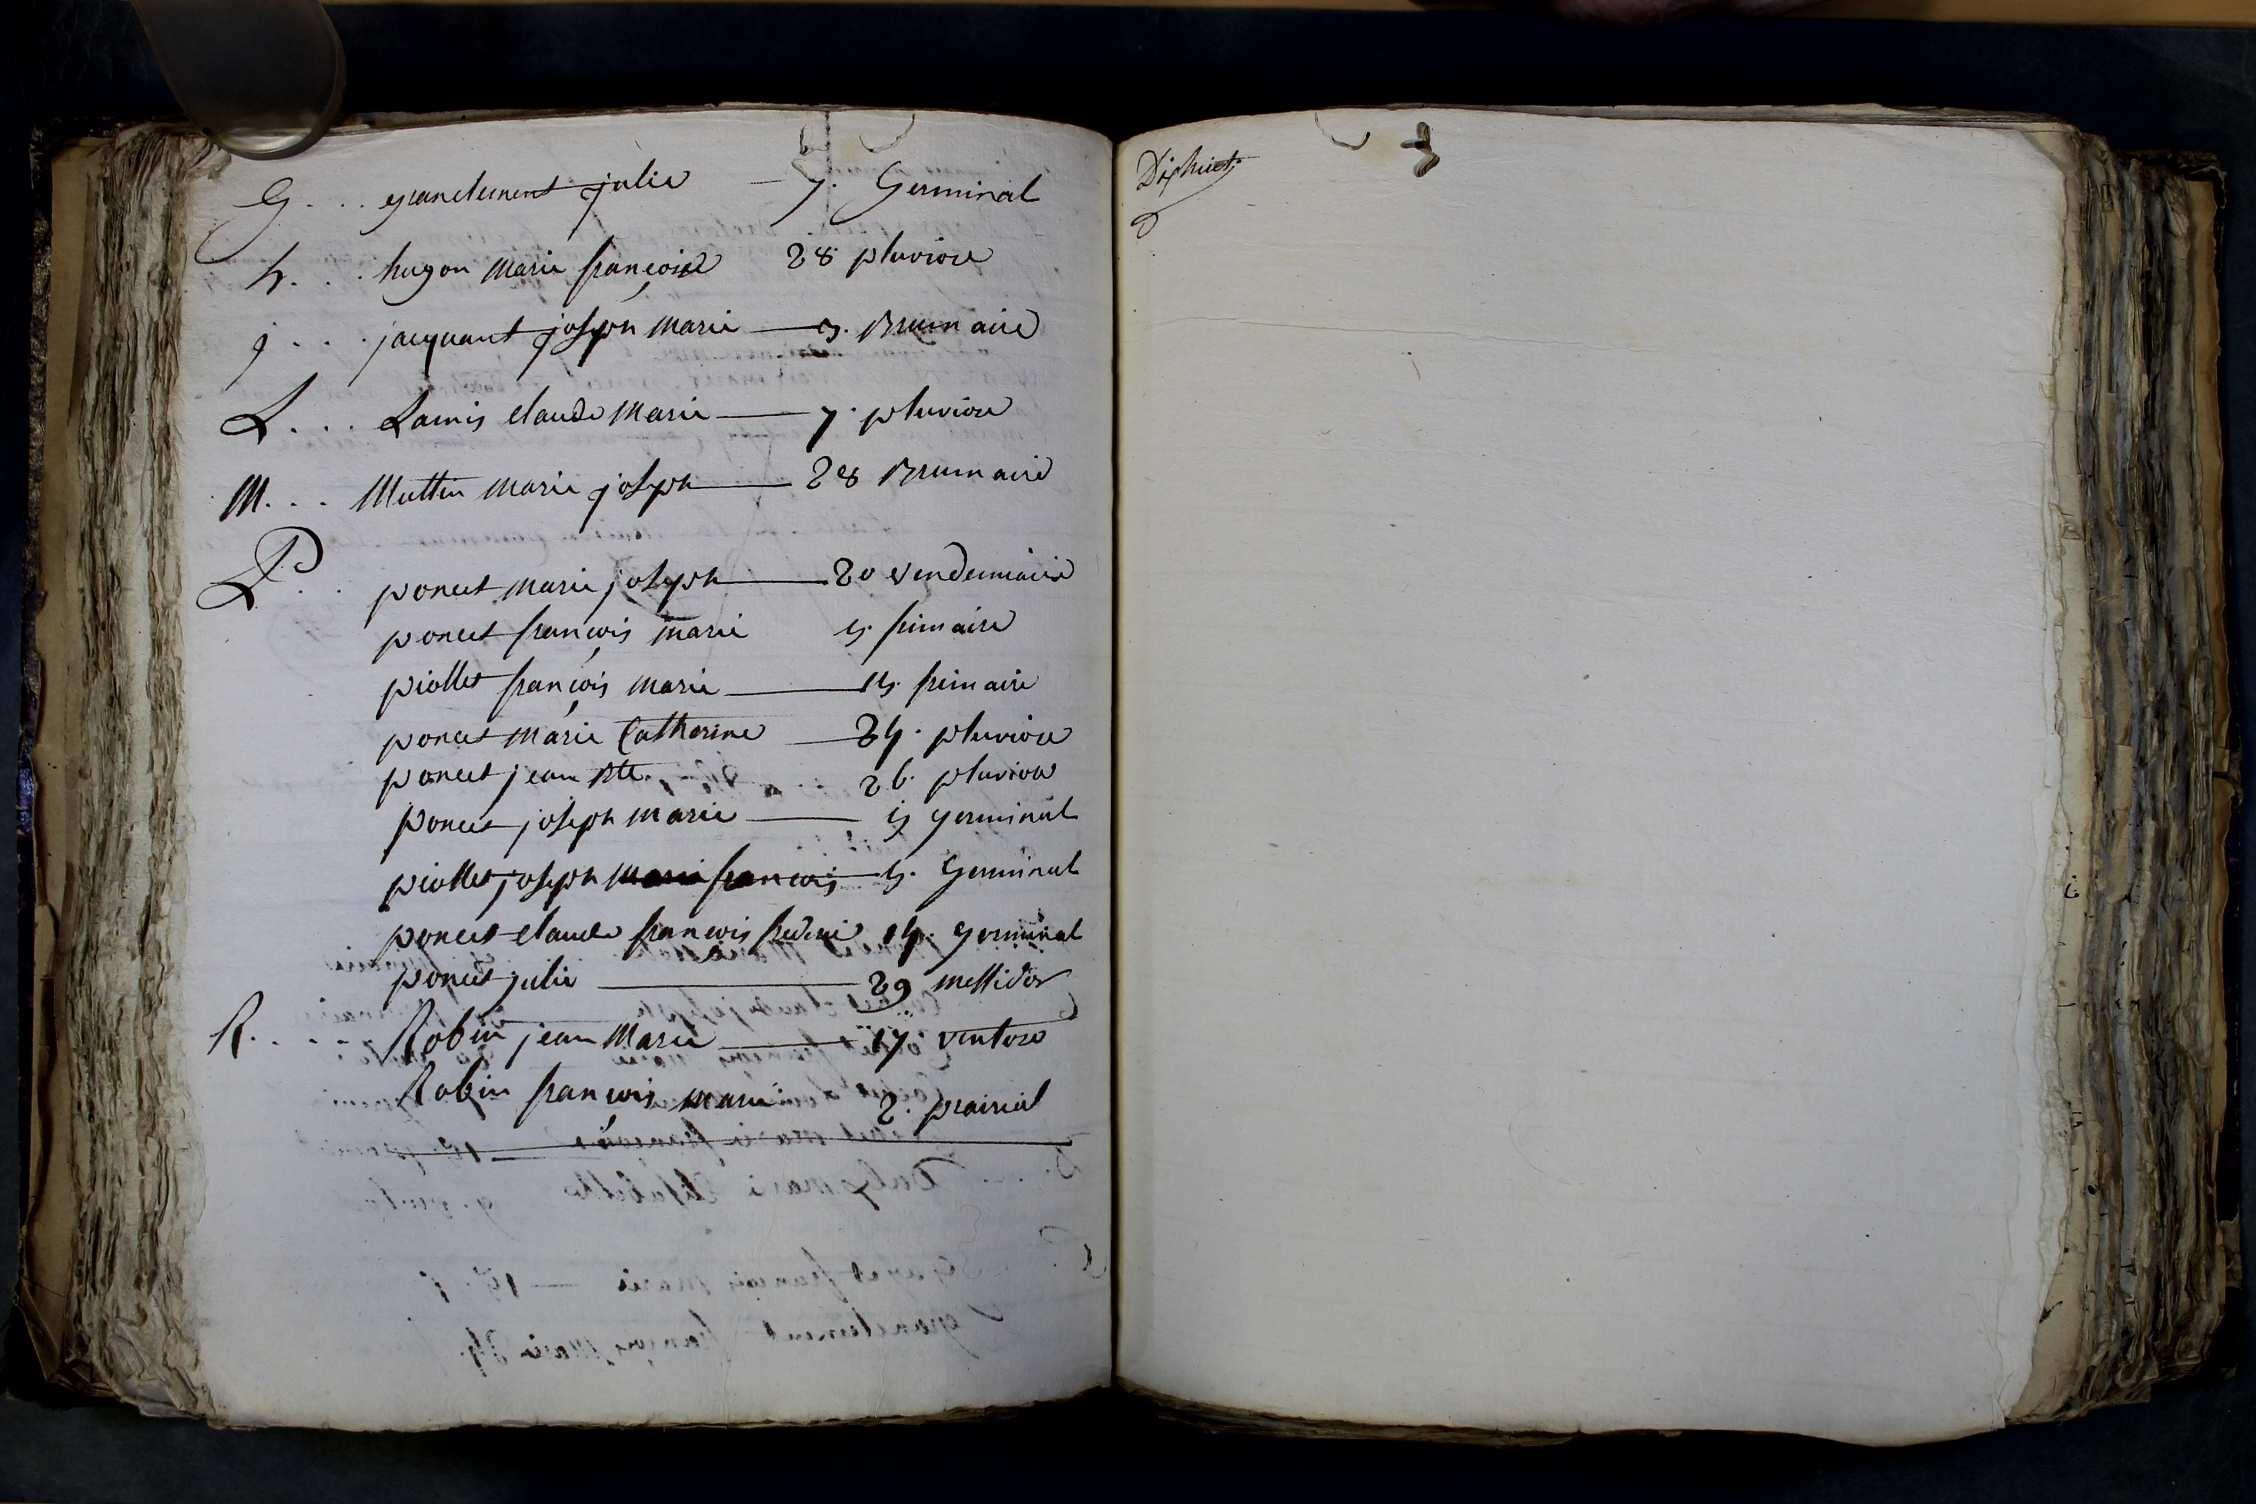 G... granclement julie — 7. Germinal
h... hugon marie françoise 28 pluviose
j... jacquant joseph marie — 3. Brumaire
L... Lamis claude Marie — 7. pluviose
M... Muttin marie joseph — 28 Brumaire
P.. poncet marie joseph — 20 vendemiaire
poncet françois marie 5. frimaire
piollet françois marie — 15. frimaire
poncet marie Catherine — 24. pluviose
poncet jean Bte. 26. pluviose
poncet joseph marie — 5 germinal
piollet joseph marie françois 5. Germinal
poncet claude françois frederic 14. germinal
poncet julie — 29 messidor
R.... Robin jean Marie — 17 ventose
Robin françois marie 2. prairial
Dixhuit